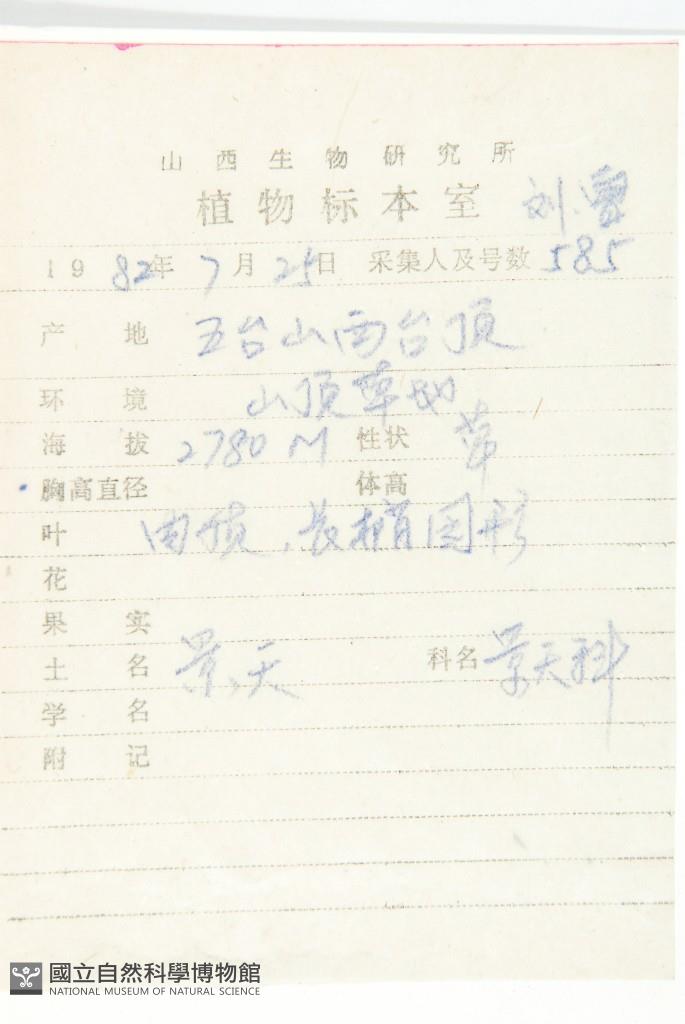 山西生物研究所
植物标本室 刘、曾
1982年7月25日 采集人及号数 585
产地 五台山西台顶
环境 山顶草地
海拔 2780M 性状 草
胸高直径 体高
叶 肉质，长椭园形
花
果实
土名 景天 科名 景天科
学名
附记
國立自然科學博物館
NATIONAL MUSEUM OF NATURAL SCIENCE